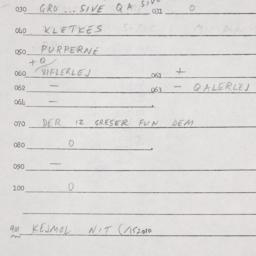 030 GRO ... SIVE QA 031 0
040 KLETKES
050 PURPERNE
+ Q
060 VIFLERLEJ 061 +
062 — 063 — QALERLEJ
064 —
070 DER IZ GRESER FUN DEM
080 0
090 —
100 0
KEJMOL NIT